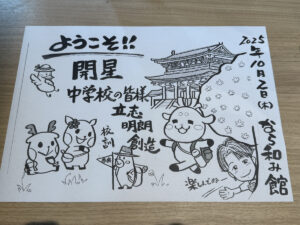 ようこそ!!
開星
中学校の皆様
校訓
立志
明朗
創造
2025年10月2日(木)
なら和み館
楽しんでネ